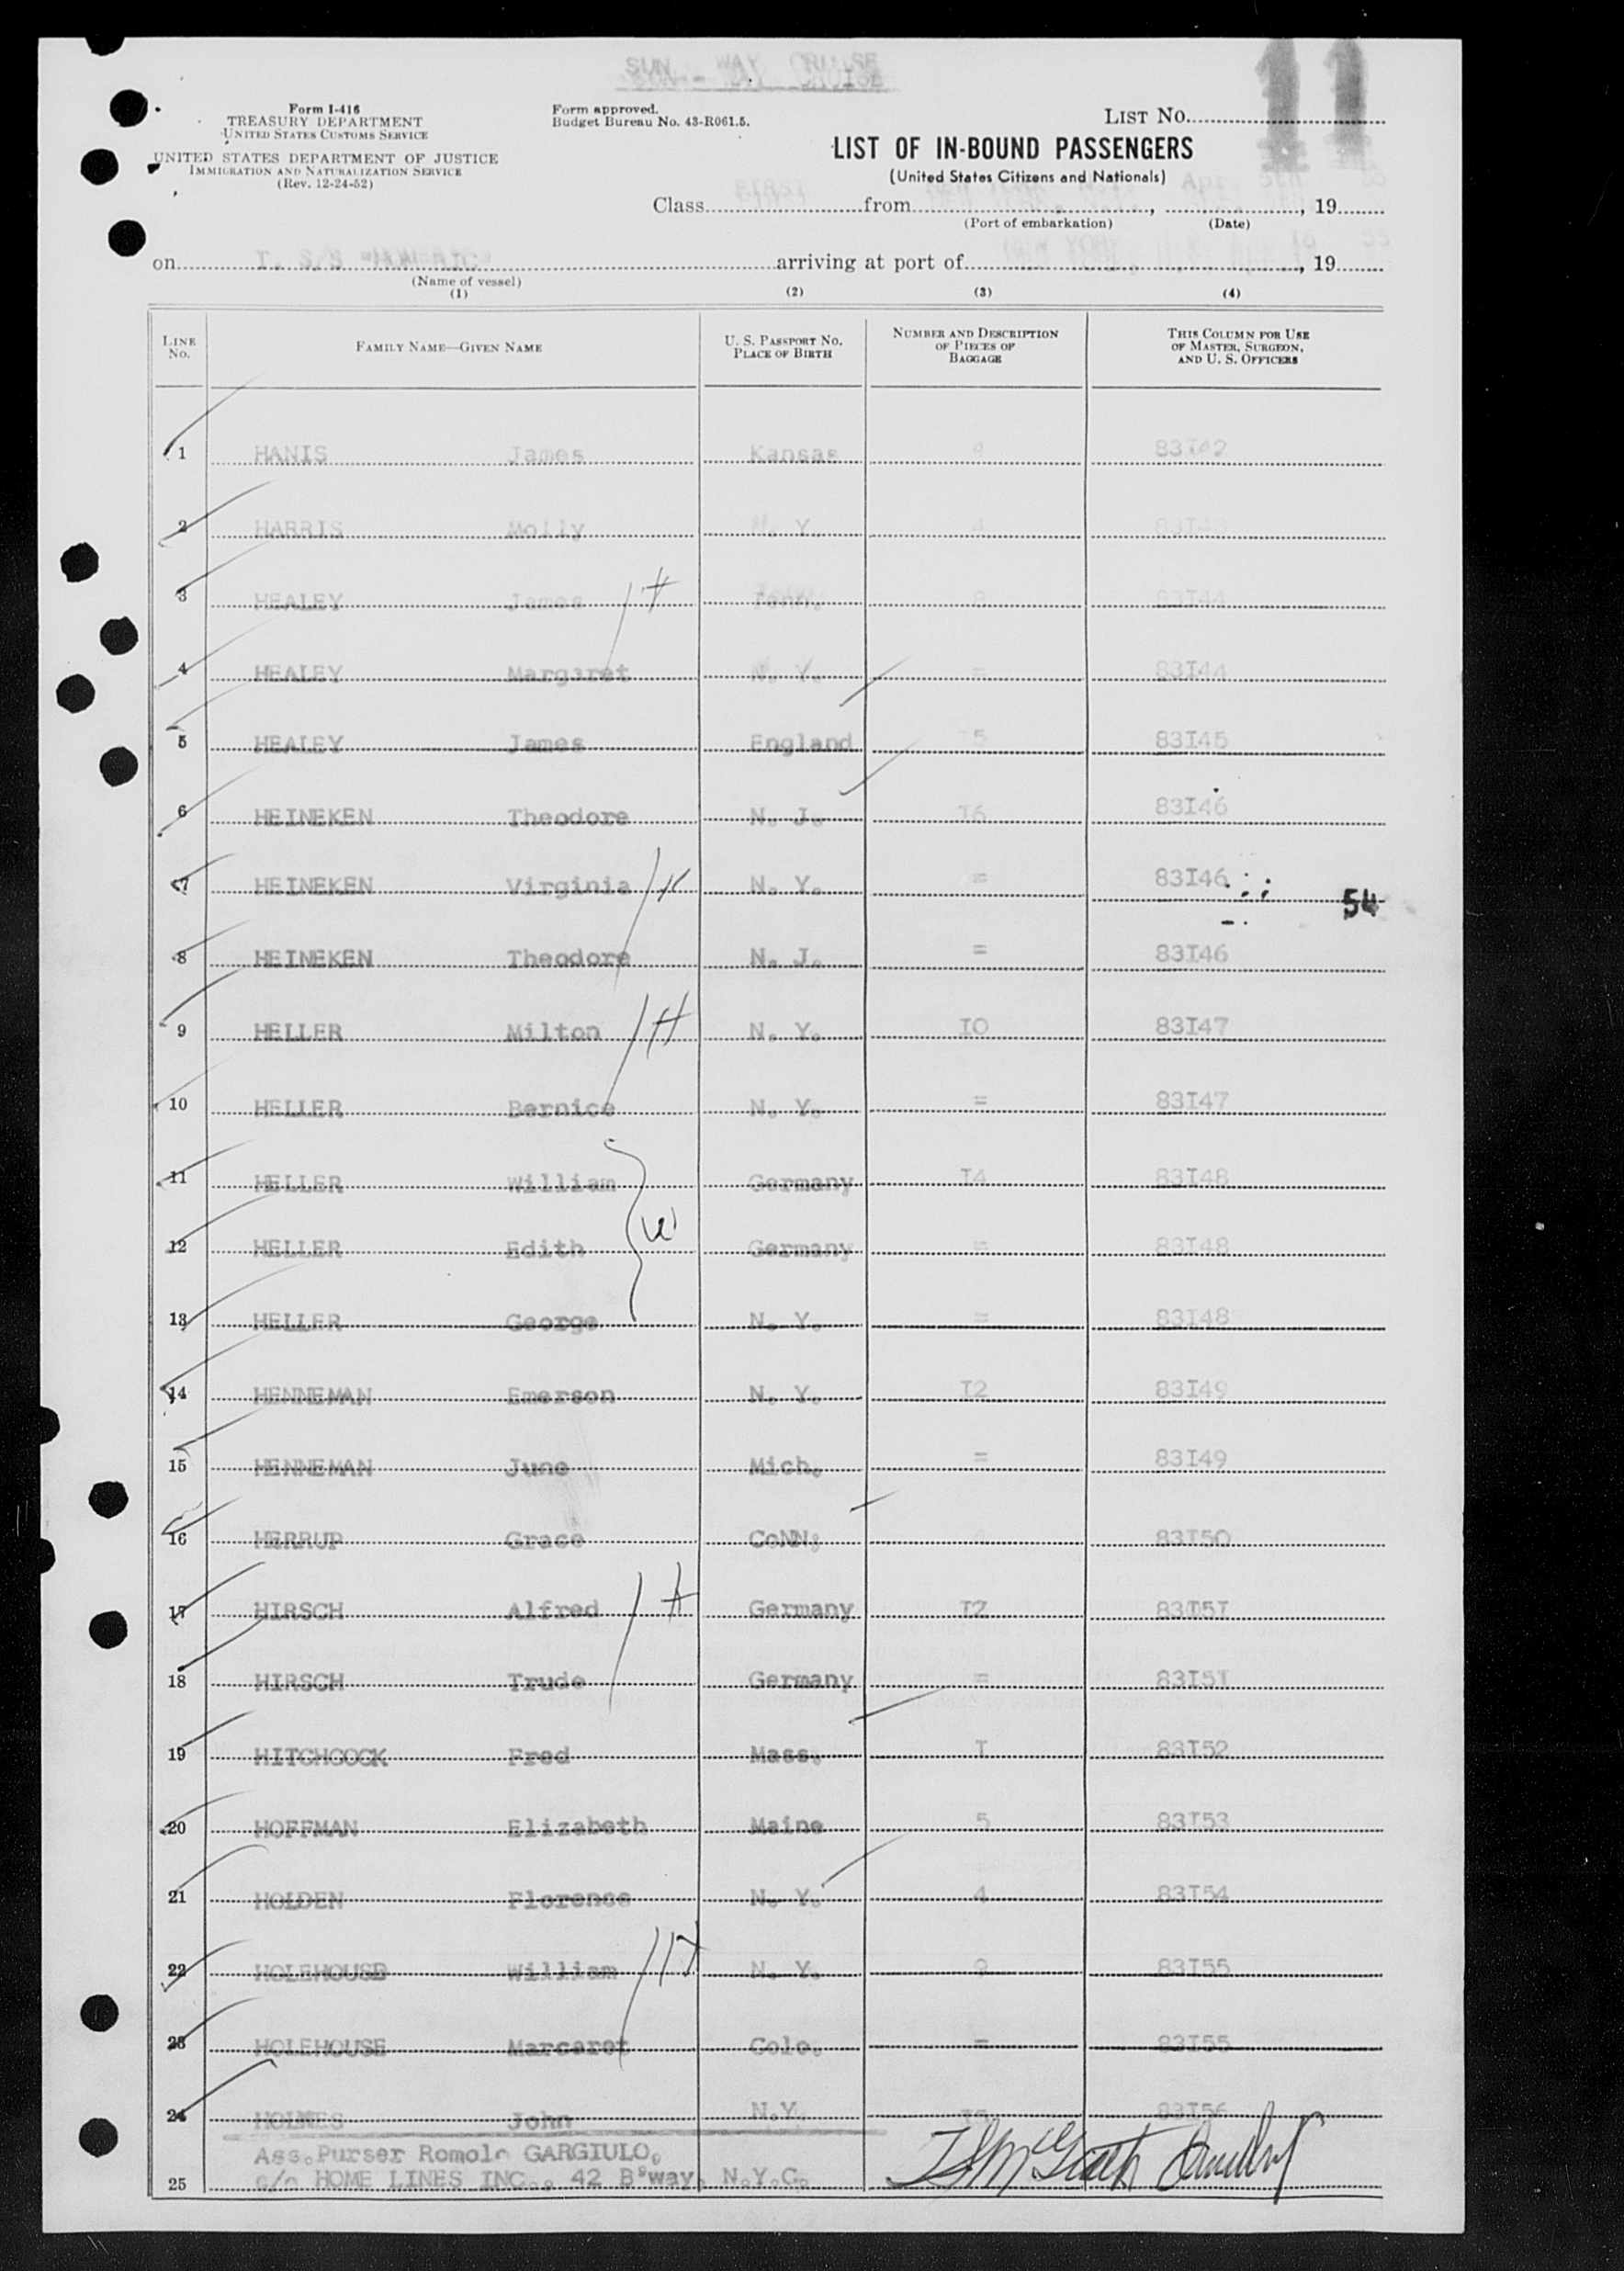 SUN WAY CRUISE
Form I-416
TREASURY DEPARTMENT
UNITED STATES CUSTOMS SERVICE
UNITED STATES DEPARTMENT OF JUSTICE
IMMIGRATION AND NATURALIZATION SERVICE
(Rev. 12-24-52)
Form approved.
Budget Bureau No. 43-R061.5.
LIST NO. 11
LIST OF IN-BOUND PASSENGERS
(United States Citizens and Nationals)
Class FIRST from NEW YORK, Apr. 5th, 19
(Port of embarkation) (Date)
on T. S/S "HOMERIC" arriving at port of NEW YORK, 16, 19 55
(Name of vessel)
(1) (2) (3) (4)
LINE NO. FAMILY NAME—GIVEN NAME U. S. PASSPORT NO. PLACE OF BIRTH NUMBER AND DESCRIPTION OF PIECES OF BAGGAGE THIS COLUMN FOR USE OF MASTER, SURGEON, AND U. S. OFFICERS
1 HANIS James Kansas 4 83I42
2 HARRIS Molly N. Y. 4 83I43
3 HEALEY James 8 83I44
4 HEALEY Margaret N. Y. = 83I44
5 HEALEY James England 5 83I45
6 HEINEKEN Theodore N. J. I6 83I46
7 HEINEKEN Virginia N. Y. = 83I46
54
8 HEINEKEN Theodore N. J. = 83I46
9 HELLER Milton N. Y. IO 83I47
10 HELLER Bernice N. Y. = 83I47
11 HELLER William Germany I4 83I48
12 HELLER Edith Germany = 83I48
13 HELLER George N. Y. = 83I48
14 HENNEMAN Emerson N. Y. I2 83I49
15 HENNEMAN June Mich. = 83I49
16 HERRUP Grace CoNN. 83I50
17 HIRSCH Alfred Germany I2 83I5I
18 HIRSCH Trude Germany = 83I5I
19 HITCHCOCK Fred Mass. I 83I52
20 HOFFMAN Elizabeth Maine 5 83I53
21 HOLDEN Florence N. Y. 4 83I54
22 HOLEHOUSE William N. Y. 9 83I55
23 HOLEHOUSE Margaret Colo. = 83I55
24 HOLMES John N.Y. 83I56
Ass.Purser Romolo GARGIULO,
25 c/o HOME LINES INC., 42 B'way, N.Y.C.